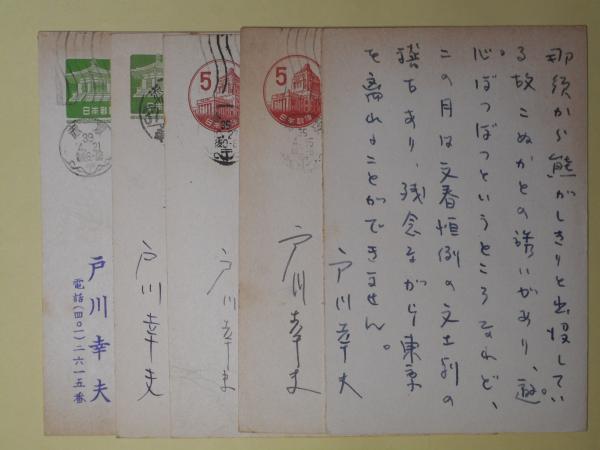 那須から熊がしきりと出没してい
る故こぬかとの誘いがあり、遊
心ぼつぼつというところなれど、
この月は文春恒例の文士劇の
稽古あり、残念ながら東京
を離れることができません。
戸川幸夫
5
日本郵便
戸川幸夫
5
日本郵便
戸川幸夫
戸川幸夫
日本郵便
39
21
戸川幸夫
電話(四〇一)二六一五番